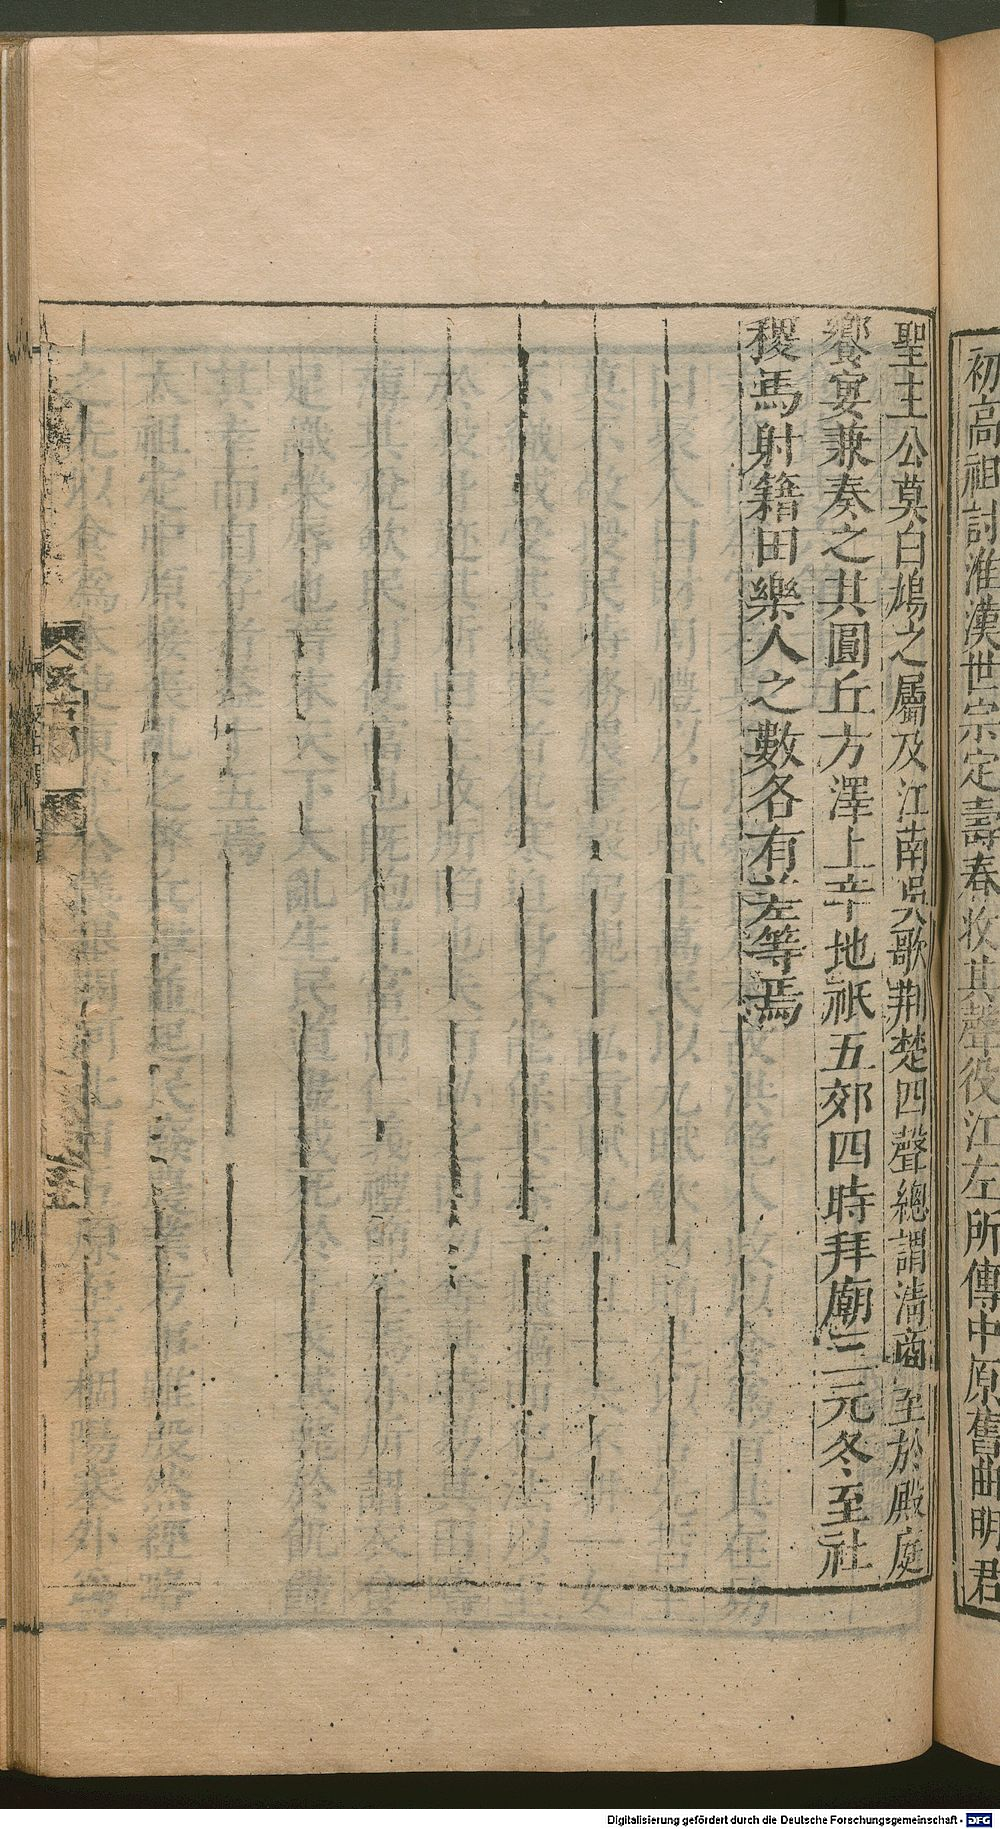 初高祖討淮漢世宗定壽春收其聲役江左所傳中原舊曲明君
聖主公莫白鳩之屬及江南吳歌荆楚四聲總謂清商至於殿庭
饗宴兼奏之其圓丘方澤上辛地祇五郊四時拜廟三元冬至社
稷馬射籍田樂人之數各有差等焉
Digitalisierung gefördert durch die Deutsche Forschungsgemeinschaft - DFG